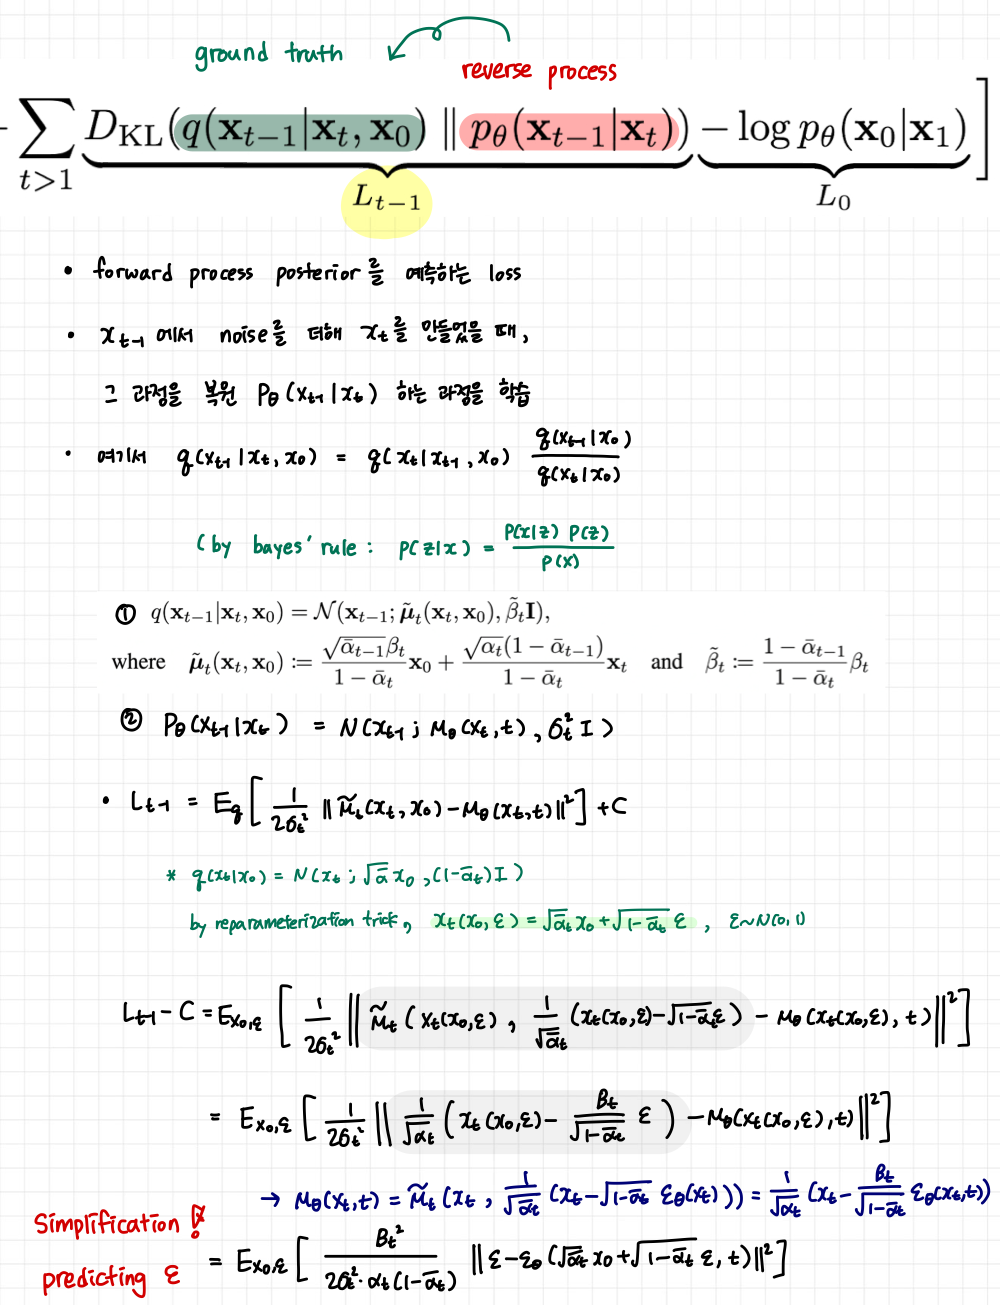 ground truth
reverse process
- ∑_{t>1} D_KL(q(x_{t-1}|x_t, x_0) ‖ p_θ(x_{t-1}|x_t)) - log p_θ(x_0|x_1) ]
L_{t-1} L_0
• forward process posterior를 예측하는 loss
• x_{t-1} 에서 noise를 더해 x_t를 만들었을 때,
그 과정을 복원 P_θ(x_{t-1}|x_t) 하는 과정을 학습
• 여기서 q(x_{t-1}|x_t, x_0) = q(x_t|x_{t-1}, x_0) q(x_{t-1}|x_0) / q(x_t|x_0)
(by bayes' rule : P(z|x) = P(x|z) P(z) / P(x)
① q(x_{t-1}|x_t, x_0) = N(x_{t-1}; μ̃_t(x_t, x_0), β̃_t I),
where μ̃_t(x_t, x_0) := √ᾱ_{t-1}β_t / (1 - ᾱ_t) x_0 + √α_t(1 - ᾱ_{t-1}) / (1 - ᾱ_t) x_t and β̃_t := (1 - ᾱ_{t-1}) / (1 - ᾱ_t) β_t
② P_θ(x_{t-1}|x_t) = N(x_{t-1} ; μ_θ(x_t, t), σ_t² I)
• L_{t-1} = E_q[ 1/2σ_t² ‖ μ̃_t(x_t, x_0) - μ_θ(x_t, t)‖² ] + C
* q(x_t|x_0) = N(x_t ; √ᾱ x_0, (1-ᾱ_t) I)
by reparameterization trick, x_t(x_0, ε) = √ᾱ_t x_0 + √1-ᾱ_t ε , ε~N(0, 1)
L_{t-1} - C = E_{x_0,ε} [ 1/2σ_t² ‖ μ̃_t ( x_t(x_0, ε) , 1/√ᾱ_t (x_t(x_0, ε) - √1-ᾱ_t ε) - μ_θ(x_t(x_0, ε), t)‖² ]
= E_{x_0,ε} [ 1/2σ_t² ‖ 1/√ᾱ_t ( x_t(x_0, ε) - β_t/√1-ᾱ_t ε ) - μ_θ(x_t(x_0, ε), t)‖² ]
→ μ_θ(x_t, t) = μ̃_t(x_t, 1/√ᾱ_t (x_t - √1-ᾱ_t ε_θ(x_t))) = 1/√α_t (x_t - β_t/√1-ᾱ_t ε_θ(x_t, t))
Simplification !
predicting ε
= E_{x_0,ε} [ β_t² / 2σ_t²·α_t(1-ᾱ_t) ‖ ε - ε_θ (√ᾱ_t x_0 + √1-ᾱ_t ε, t)‖² ]